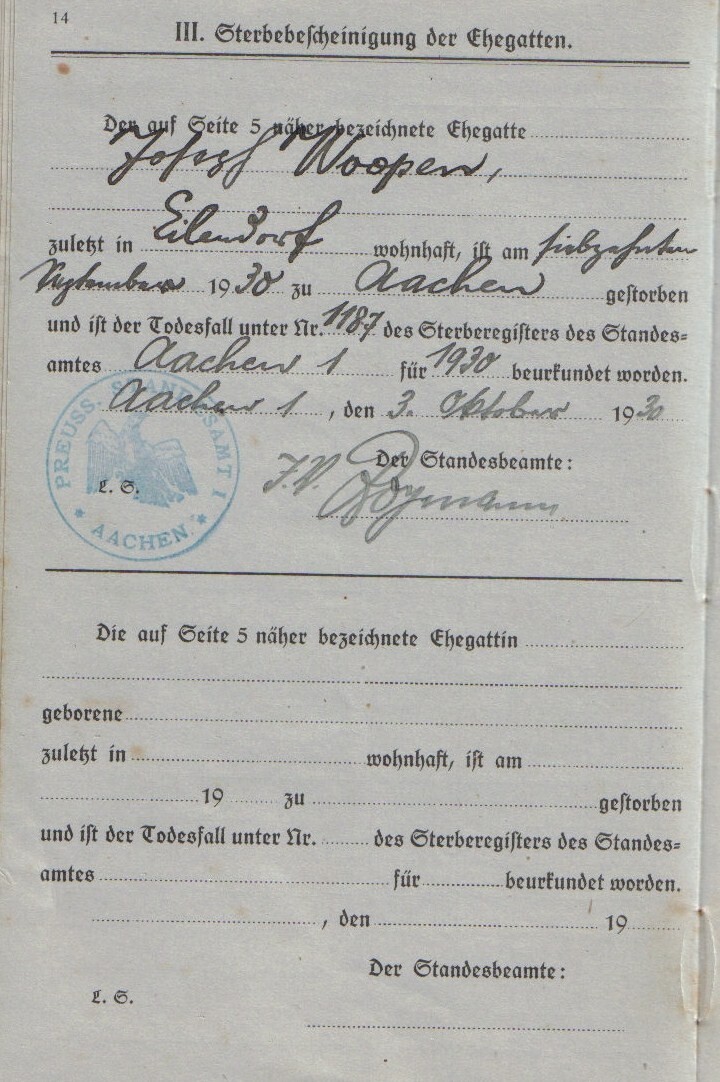 14
III. Sterbebescheinigung der Ehegatten.
Der auf Seite 5 näher bezeichnete Ehegatte
Josef Woopen,
zuletzt in Eilendorf wohnhaft, ist am siebzehnten
September 1930 zu Aachen gestorben
und ist der Todesfall unter Nr. 1187 des Sterberegisters des Standes=
amtes Aachen 1 für 1930 beurkundet worden.
Aachen 1, den 3. Oktober 1930
Der Standesbeamte:
J.V.
L. S.
PREUSS. STANDESAMT I
* AACHEN *
Die auf Seite 5 näher bezeichnete Ehegattin
geborene
zuletzt in wohnhaft, ist am
19 zu gestorben
und ist der Todesfall unter Nr. des Sterberegisters des Standes=
amtes für beurkundet worden.
, den 19
Der Standesbeamte:
L. S.